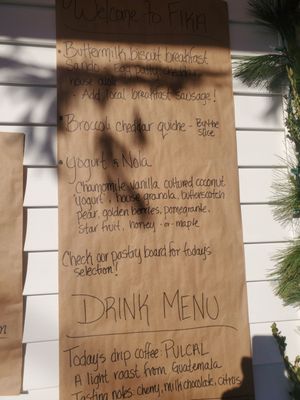 Welcome to FIKA
Buttermilk biscuit breakfast
Sando - Egg patty, cheddar,
house aioli
- Add local breakfast sausage!
Broccoli cheddar quiche - By the
slice
Yogurt & Nola
Chamomile vanilla cultured coconut
"yogurt", house granola, butterscotch
pear, golden berries, pomegranate,
star fruit, honey -or- maple
Check our pastry board for todays
selection!
DRINK MENU
Todays drip coffee: PULCAL
A light roast from Guatemala
Tasting notes: cherry, milk chocolate, citrus